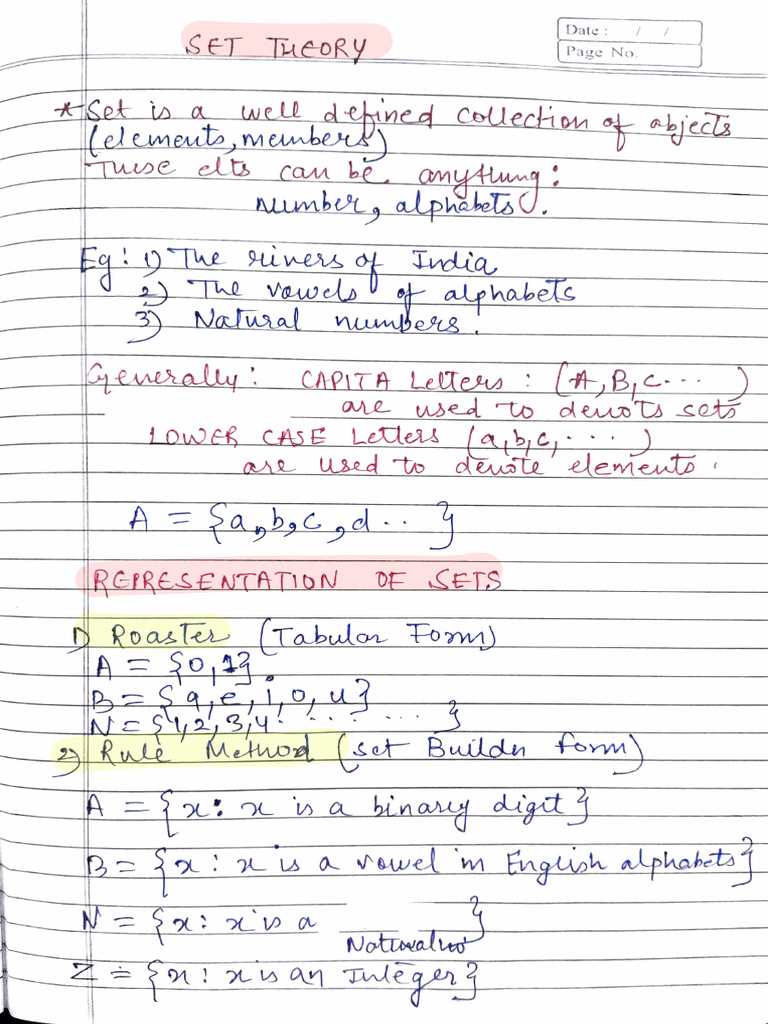 SET THEORY
Date : / /
Page No.
* Set is a well defined collection of abjects
(elements, members)
These elts can be anything:
number, alphabets.
Eg: 1) The rivers of India
2) The vowels of alphabets
3) Natural numbers.
Generally: CAPITA Letters : (A, B, C... )
are used to denots sets
LOWER CASE Letters (a, b, c, ....)
are used to denote elements.
A = {a, b, c, d.. }
REPRESENTATION OF SETS
1) ROASTER (Tabular Form)
A = {0, 1}.
B = {a, e, i, o, u}
N = {1, 2, 3, 4. ... ... }
2) Rule Method (set Buildr form)
A = {x : x is a binary digit}
B = {x : x is a vowel in English alphabets}
N = {x : x is a }
Natural no
Z = {x : x is an Integer}